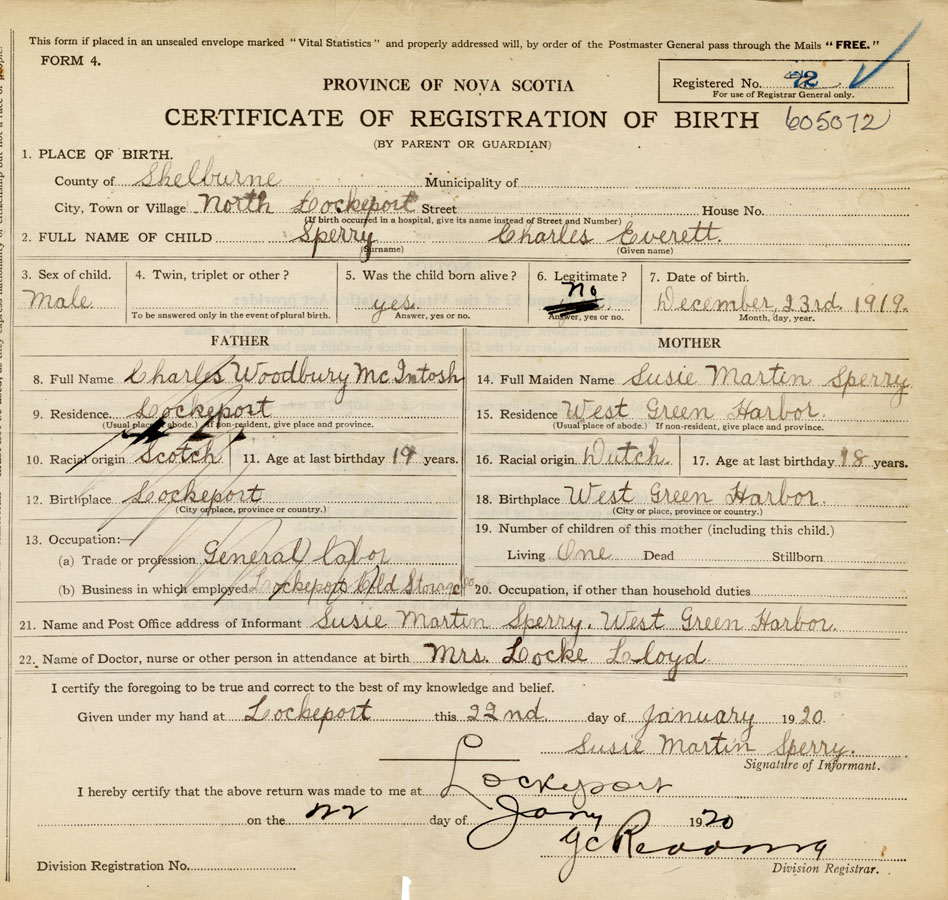 This form if placed in an unsealed envelope marked "Vital Statistics" and properly addressed will, by order of the Postmaster General pass through the Mails "FREE."
FORM 4.
Registered No. 72
For use of Registrar General only.
PROVINCE OF NOVA SCOTIA
CERTIFICATE OF REGISTRATION OF BIRTH 605072
(BY PARENT OR GUARDIAN)
1. PLACE OF BIRTH.
County of Shelburne Municipality of
City, Town or Village North Lockeport Street House No.
(If birth occurred in a hospital, give its name instead of Street and Number)
2. FULL NAME OF CHILD Sperry Charles Everett.
(Surname) (Given name)
3. Sex of child. 4. Twin, triplet or other? 5. Was the child born alive? 6. Legitimate? 7. Date of birth.
Male yes. No December, 23rd 1919.
To be answered only in the event of plural birth. Answer, yes or no. Answer, yes or no. Month, day, year.
FATHER MOTHER
8. Full Name Charles Woodbury McIntosh 14. Full Maiden Name Susie Martin Sperry.
9. Residence. Lockeport 15. Residence West Green Harbor.
(Usual place of abode.) If non-resident, give place and province. (Usual place of abode.) If non-resident, give place and province.
10. Racial origin Scotch 11. Age at last birthday 19 years. 16. Racial origin Dutch. 17. Age at last birthday 18 years.
12. Birthplace Lockeport 18. Birthplace West Green Harbor.
(City or place, province or country.) (City or place, province or country.)
13. Occupation:— 19. Number of children of this mother (including this child.)
(a) Trade or profession General labor Living One Dead Stillborn
(b) Business in which employed Lockeport Cold Storage Co. 20. Occupation, if other than household duties
21. Name and Post Office address of Informant Susie Martin Sperry. West Green Harbor.
22. Name of Doctor, nurse or other person in attendance at birth Mrs. Locke Lloyd
I certify the foregoing to be true and correct to the best of my knowledge and belief.
Given under my hand at Lockeport this 22nd. day of January 1920.
Susie Martin Sperry.
Signature of Informant.
I hereby certify that the above return was made to me at Lockeport
on the 22 day of Jany 1920
Division Registration No. Division Registrar.